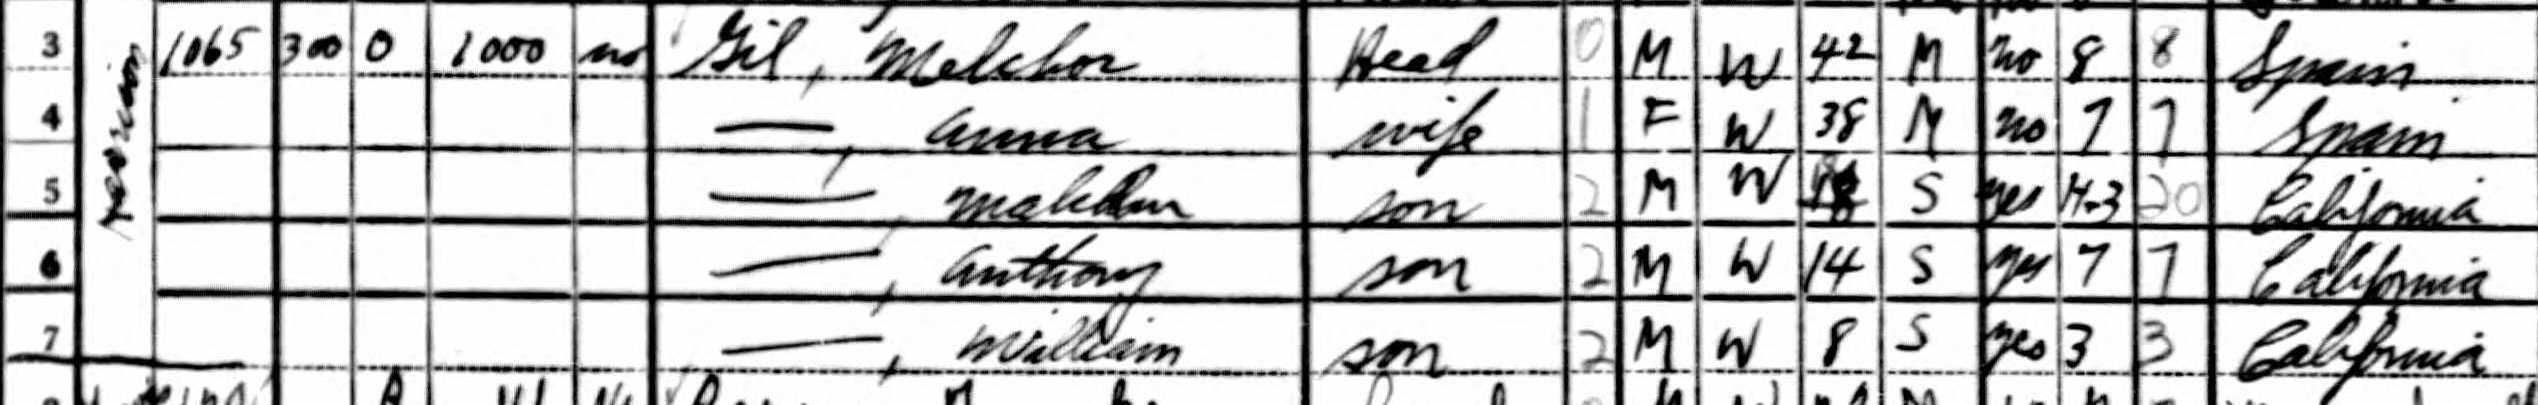 3 1065 300 O 1000 no Gil, Melchor Head 0 M W 42 M no 8 8 Spain
4 —, Anna wife 1 F W 38 M no 7 7 Spain
5 —, son 2 M W S yes H-3 20 California
6 —, Anthony son 2 M W 14 S yes 7 7 California
7 —, William son 2 M W 8 S yes 3 3 California